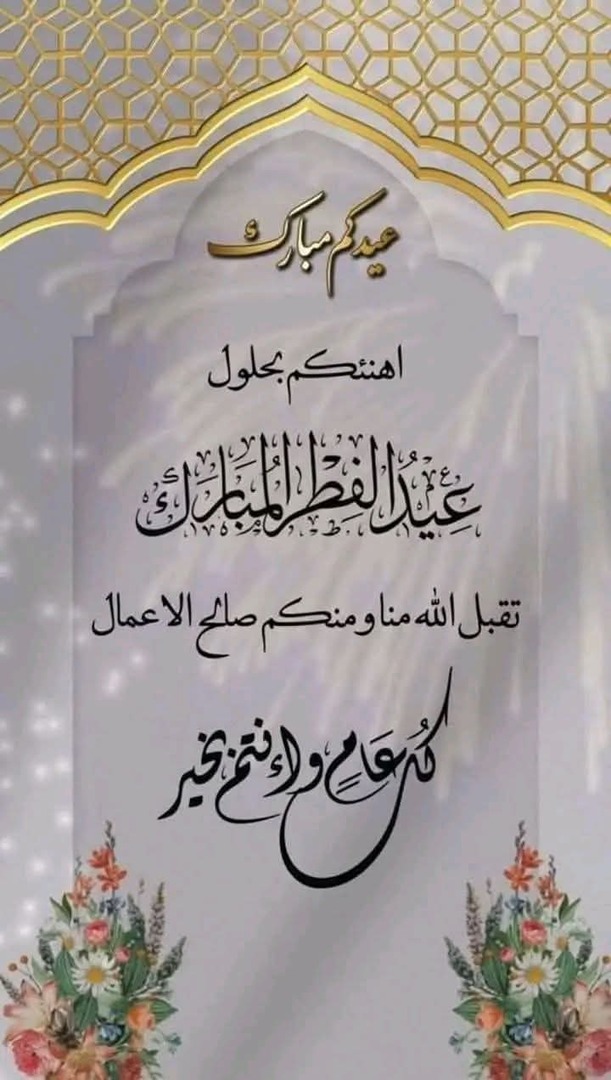 عيدكم مبارك
اهنئكم بحلول
عِيدُ الفِطْرِ المُبَارَك
تقبل الله منا ومنكم صالح الاعمال
كُل عَامٍ وانتم بخير